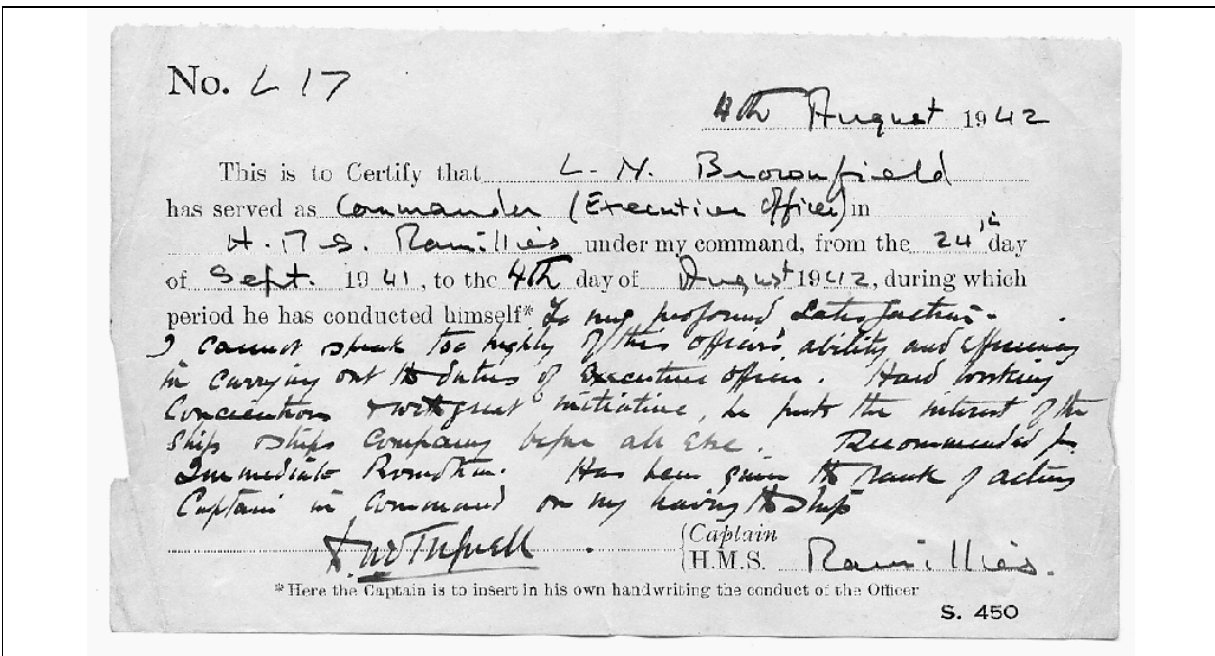 No. L 17
4th August 1942
This is to Certify that L. N. Brownfield
has served as Commander (Executive Officer) in
H.M.S. Ramillies under my command, from the 24th day
of Sept. 1941, to the 4th day of August 1942, during which
period he has conducted himself* To my profound Satisfaction.
I cannot speak too highly of this officer's ability and efficiency
in carrying out the duties of Executive officer. Hard working
Conscientious & with great initiative, he puts the interest of the
ship & ships Company before all else. Recommended for
Immediate Promotion. Has been given the rank of acting
Captain in Command on my leaving the ship
D.N.C. Tufnell
{Captain
{H.M.S. Ramillies.
*Here the Captain is to insert in his own handwriting the conduct of the Officer
S. 450